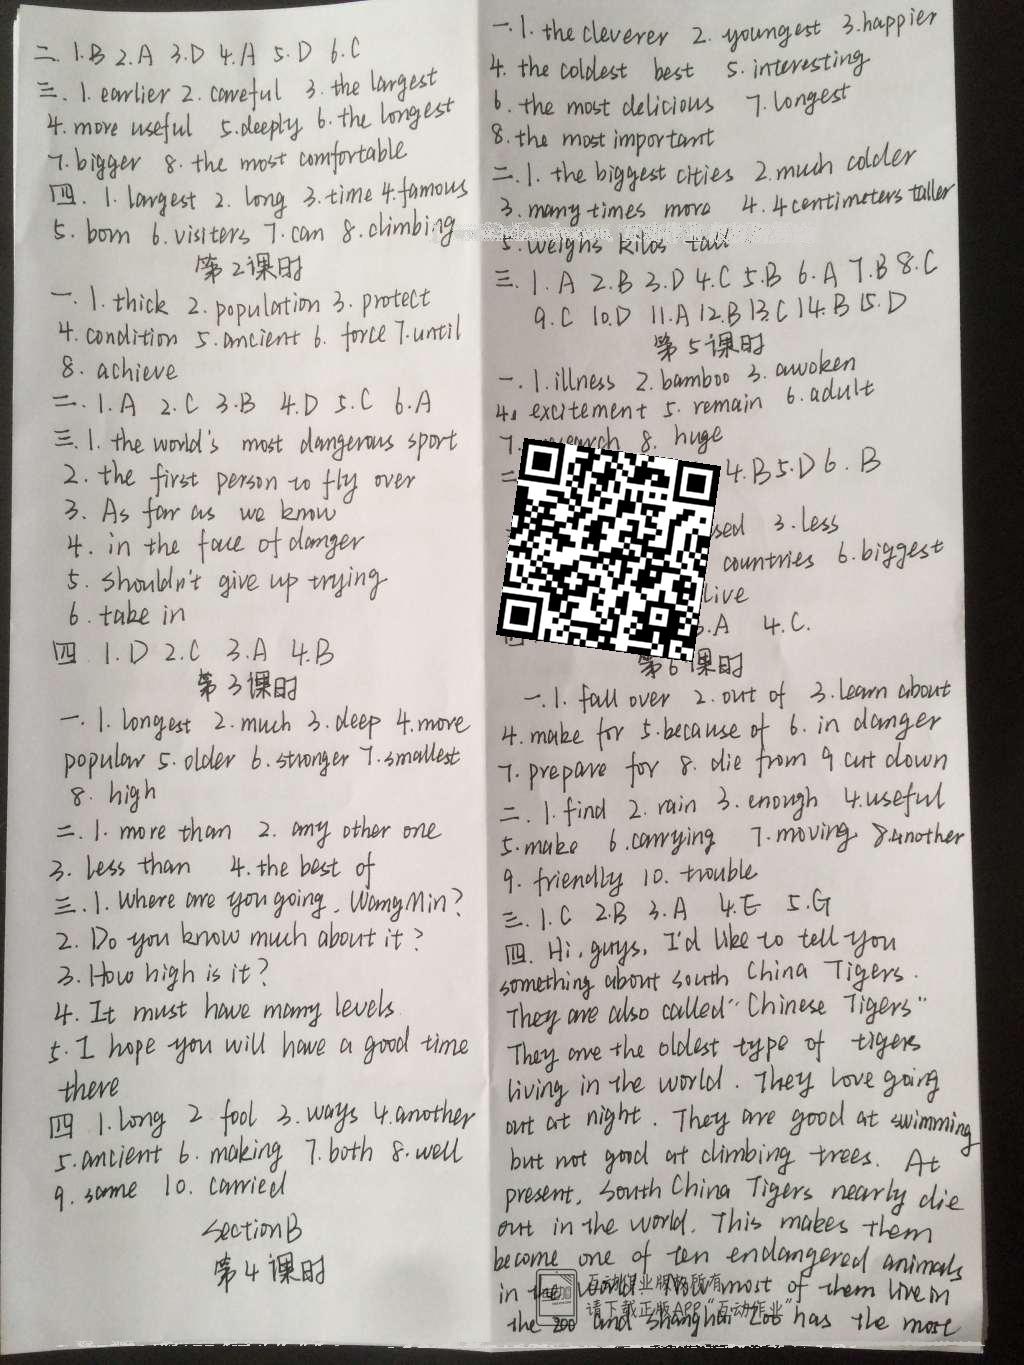 二. 1.B 2.A 3.D 4.A 5.D 6.C
三. 1. earlier 2. careful 3. the largest
4. more useful 5. deeply 6. the longest
7. bigger 8. the most comfortable
四. 1. largest 2. long 3. time 4. famous
5. born 6. visiters 7. can 8. climbing
第2课时
一. 1. thick 2. population 3. protect
4. condition 5. ancient 6. force 7. until
8. achieve
二. 1.A 2.C 3.B 4.D 5.C 6.A
三. 1. the world's most dangerous sport
2. the first person to fly over
3. As far as we know
4. in the face of danger
5. shouldn't give up trying
6. take in
四 1.D 2.C 3.A 4.B
第3课时
一. 1. longest 2. much 3. deep 4. more
popular 5. older 6. stronger 7. smallest
8. high
二. 1. more than 2. any other one
3. less than 4. the best of
三. 1. Where are you going, Wang Min?
2. Do you know much about it?
3. How high is it?
4. It must have many levels
5. I hope you will have a good time
there
四 1. long 2 fool 3. ways 4. another
5. ancient 6. making 7. both 8. well
9. same 10. carried
Section B
第4课时
一. 1. the cleverer 2. youngest 3. happier
4. the coldest best 5. interesting
6. the most delicious 7. longest
8. the most important
二. 1. the biggest cities 2. much colder
3. many times more 4. 4 centimeters taller
5. weighs kilos tall
三. 1.A 2.B 3.D 4.C 5.B 6.A 7.B 8.C
9.C 10.D 11.A 12.B 13.C 14.B 15.D
第5课时
一. 1. illness 2. bamboo 3. awoken
4. excitement 5. remain 6. adult
7. 8. huge
4.B 5.D 6. B
3. less
countries 6. biggest
live
3.A 4.C.
第6课时
一. 1. fall over 2. out of 3. learn about
4. make for 5. because of 6. in danger
7. prepare for 8. die from 9 cut down
二. 1. find 2. rain 3. enough 4. useful
5. make 6. carrying 7. moving 8. another
9. friendly 10. trouble
三. 1.C 2.B 3.A 4.E 5.G
四. Hi, guys, I'd like to tell you
something about South China Tigers.
They are also called "Chinese Tigers"
They are the oldest type of tigers
living in the world. They love going
out at night. They are good at swimming
but not good at climbing trees. At
present, South China Tigers nearly die
out in the world. This makes them
become one of ten endangered animals
in the world. Now most of them live in
the zoo and Shanghai Zoo has the most
互动作业版权所有
请下载正版APP"互动作业"